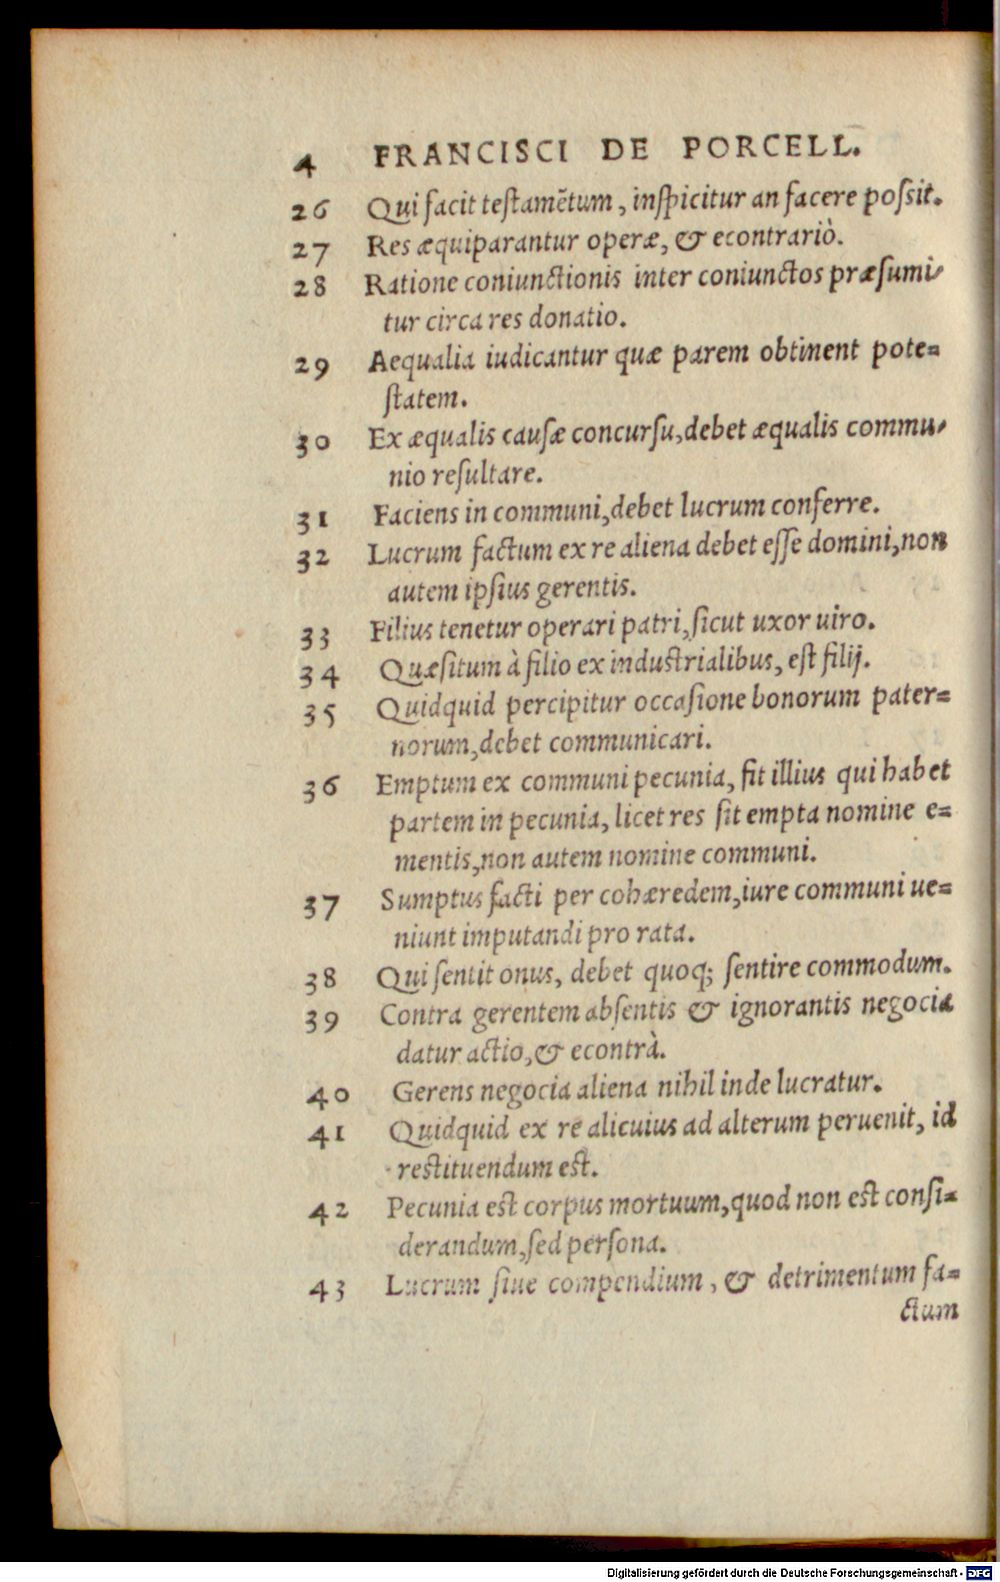 4 FRANCISCI DE PORCELL.
26 Qui facit testamētum, inspicitur an facere possit.
27 Res æquiparantur operæ, & econtrariò.
28 Ratione coniunctionis inter coniunctos præsumi-
tur circa res donatio.
29 Aequalia iudicantur quæ parem obtinent pote=
statem.
30 Ex æqualis causæ concursu, debet æqualis commu-
nio resultare.
31 Faciens in communi, debet lucrum conferre.
32 Lucrum factum ex re aliena debet esse domini, non
autem ipsius gerentis.
33 Filius tenetur operari patri, sicut uxor uiro.
34 Quæsitum à filio ex industrialibus, est filij.
35 Quidquid percipitur occasione bonorum pater=
norum, debet communicari.
36 Emptum ex communi pecunia, fit illius qui habet
partem in pecunia, licet res sit empta nomine e=
mentis, non autem nomine communi.
37 Sumptus facti per cohæredem, iure communi ue=
niunt imputandi pro rata.
38 Qui sentit onus, debet quoq; sentire commodum.
39 Contra gerentem absentis & ignorantis negocia
datur actio, & econtrà.
40 Gerens negocia aliena nihil inde lucratur.
41 Quidquid ex re alicuius ad alterum peruenit, id
restituendum est.
42 Pecunia est corpus mortuum, quod non est consi=
derandum, sed persona.
43 Lucrum siue compendium, & detrimentum fa=
ctum
Digitalisierung gefördert durch die Deutsche Forschungsgemeinschaft - DFG